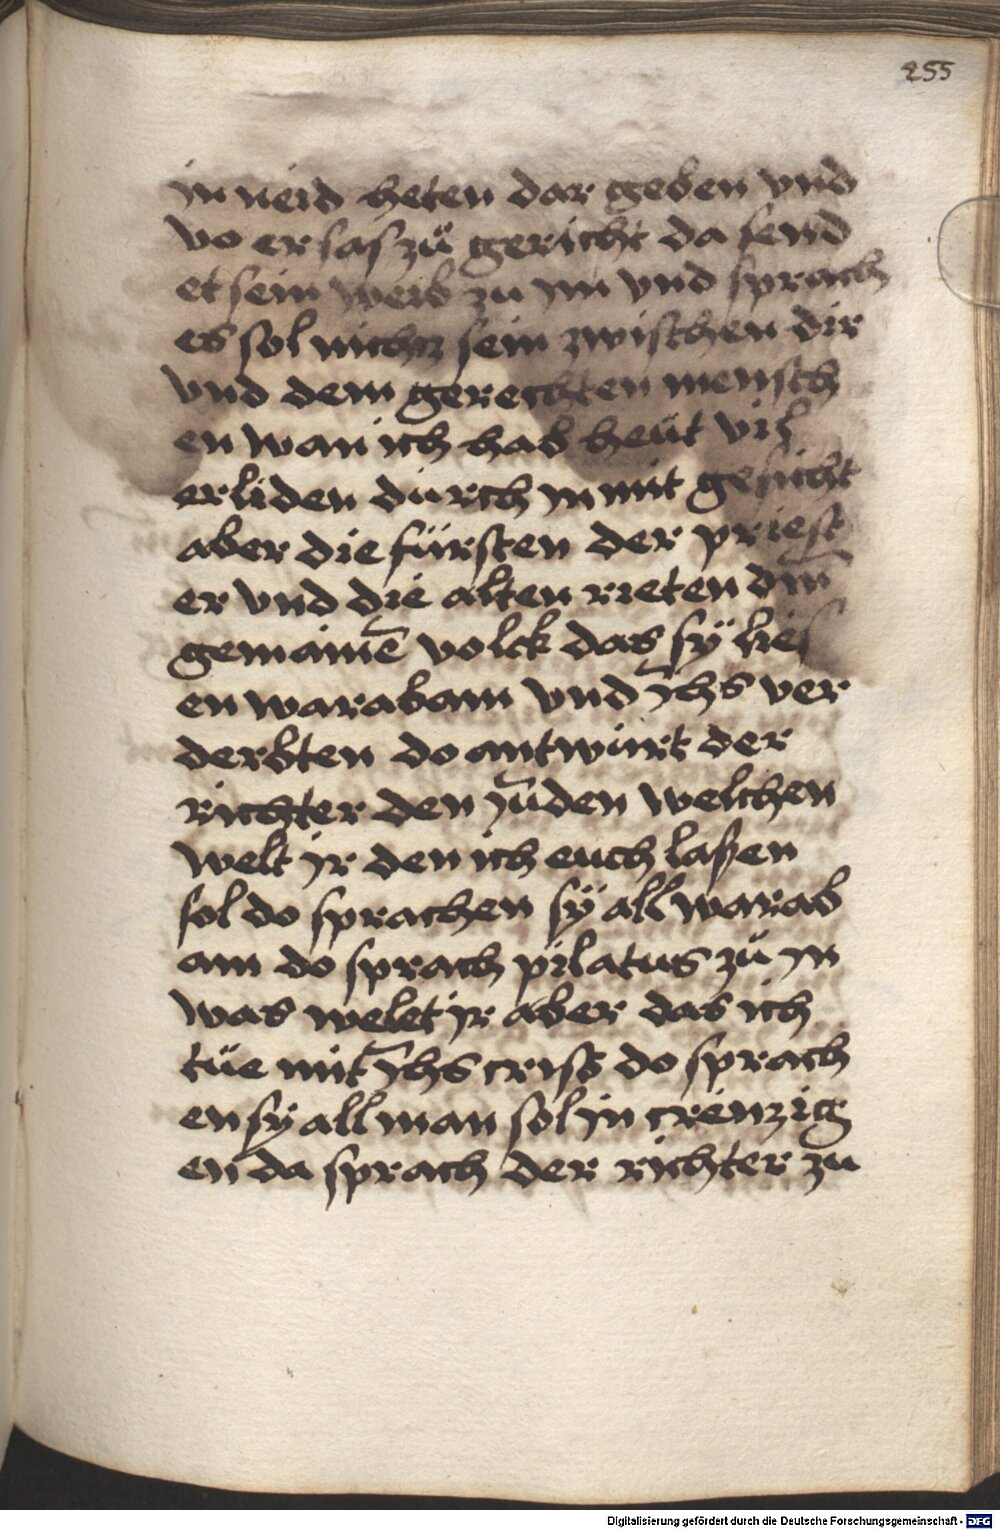 255
in neid heten dar geben vnd
vo er sas zů gericht da send
et sein weib zu im vnd sprach
es sol nichtz sein zwischen dir
vnd dem gerechten mensch
en wan ich hab heüt vil
erliden durch in mit gesicht
aber die fürsten der priest
er vnd die alten rieten dm̄
gemainē volck das sÿ lies
en warabam vnd Jh̄s ver
derbten do antwürt der
richter den Jůden welchen
welt ir den ich euch laßen
sol do sprachen sÿ all warab
am do sprach pilatus zů in
was welet ir aber das ich
tüe mit Jh̄s crist do sprach
en sÿ all man sol in creünzig
en da sprach der richter zu
Digitalisierung gefördert durch die Deutsche Forschungsgemeinschaft - DFG